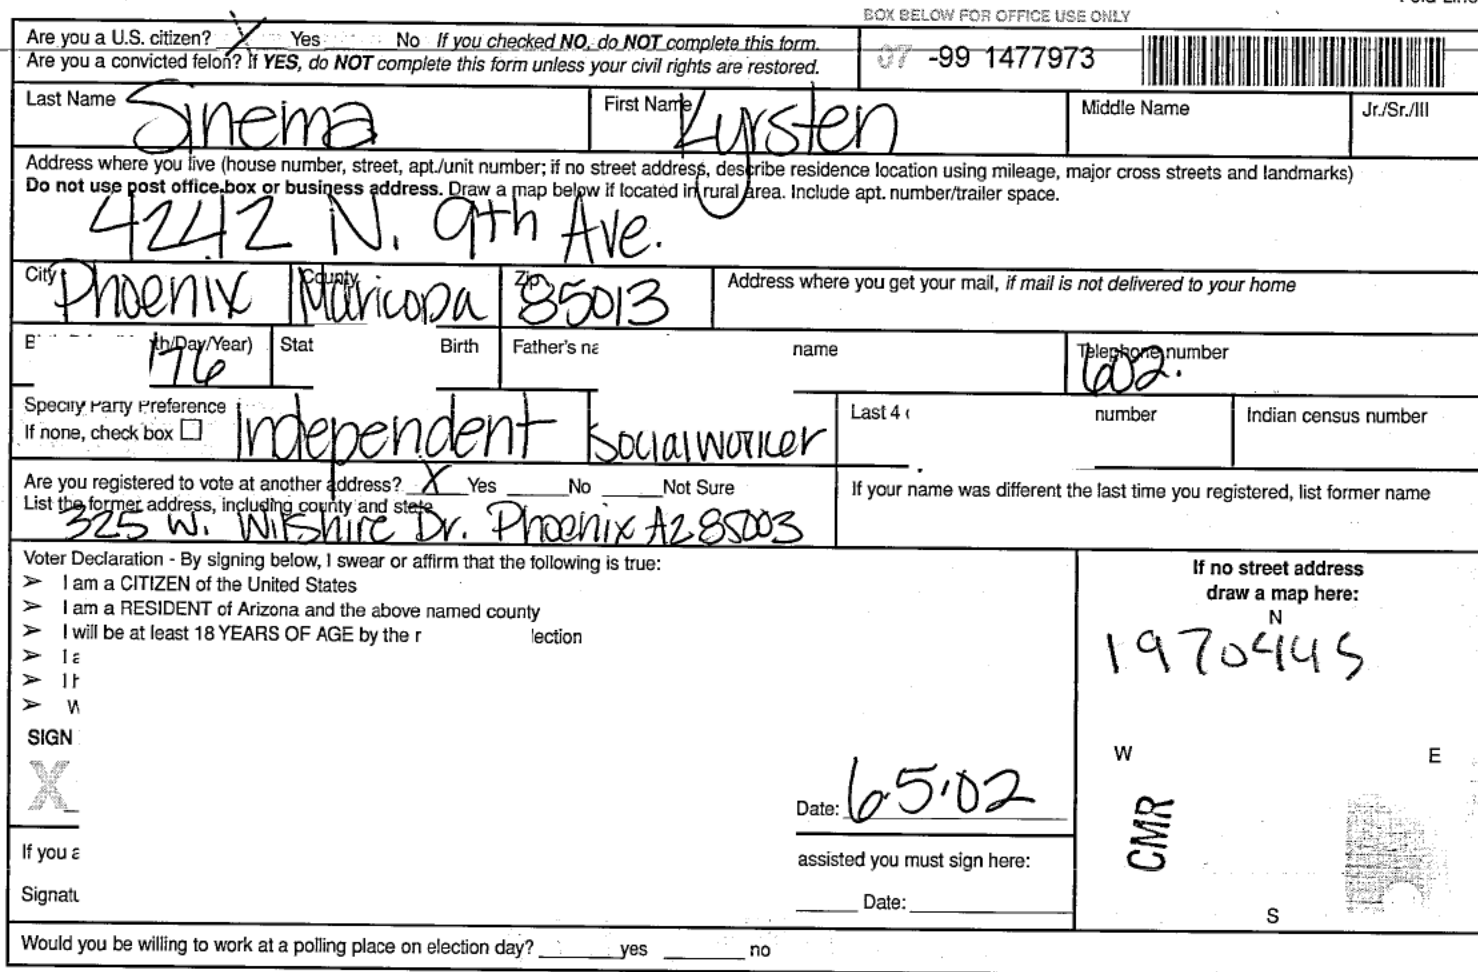 BOX BELOW FOR OFFICE USE ONLY
Are you a U.S. citizen? X Yes No If you checked NO, do NOT complete this form.
Are you a convicted felon? If YES, do NOT complete this form unless your civil rights are restored.
07 -99 1477973
Last Name Sinema First Name Kyrsten Middle Name Jr./Sr./III
Address where you live (house number, street, apt./unit number; if no street address, describe residence location using mileage, major cross streets and landmarks)
Do not use post office box or business address. Draw a map below if located in rural area. Include apt. number/trailer space.
4242 N. 9th Ave.
City Phoenix County Maricopa Zip 85013 Address where you get your mail, if mail is not delivered to your home
th/Day/Year) Stat Birth Father's na name Telephone number
176 602.
Specify Party Preference Independent Social Worker Last 4 number Indian census number
If none, check box
Are you registered to vote at another address? X Yes No Not Sure If your name was different the last time you registered, list former name
List the former address, including county and state
325 W. Wilshire Dr. Phoenix AZ 85003
Voter Declaration - By signing below, I swear or affirm that the following is true:
➢ I am a CITIZEN of the United States
➢ I am a RESIDENT of Arizona and the above named county
➢ I will be at least 18 YEARS OF AGE by the r lection
➢ I a
➢ I h
➢ W
SIGN
X
Date: 6·5·02
If you a assisted you must sign here:
Signatu Date:
If no street address
draw a map here:
N
1970445
W E
CMR
S
Would you be willing to work at a polling place on election day? yes no